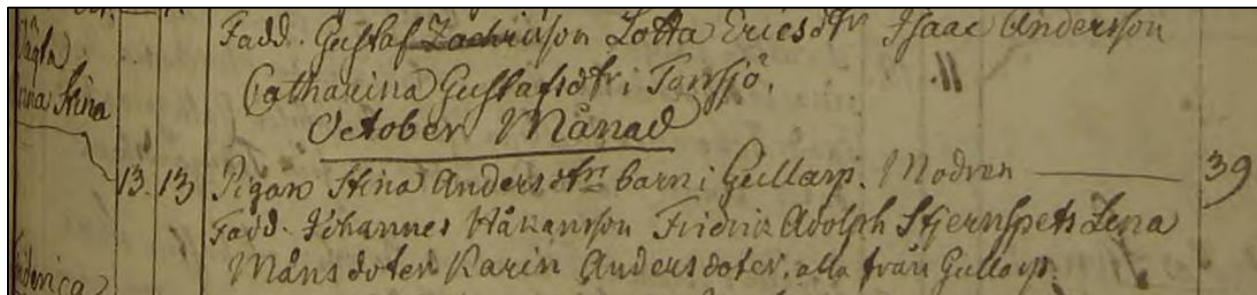 Fadd. Gustaf Zachrisson Lotta Ericsdtr Isaac Andersson
Catharina Gustafsdtr i Torrsjö.
Stina
October Månad
13. 13 Pigan Stina Andersdtrs barn i Gullarp. Modren 39
Fadd. Johannes Håkansson Fridric Adolph Stjernspets Lena
Måns doter Karin Anders doter, alla från Gullarp.